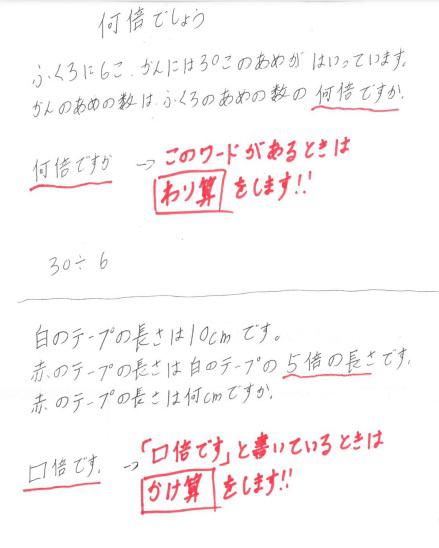 何倍でしょう
ふくろに6こ、かんには30このあめがはいっています。
かんのあめの数は、ふくろのあめの数の何倍ですか。
何倍ですか → このワードがあるときは
わり算をします!!
30÷6
白のテープの長さは10cmです。
赤のテープの長さは白のテープの5倍の長さです。
赤のテープの長さは何cmですか。
□倍です。 → 「□倍です」と書いているときは
かけ算をします!!